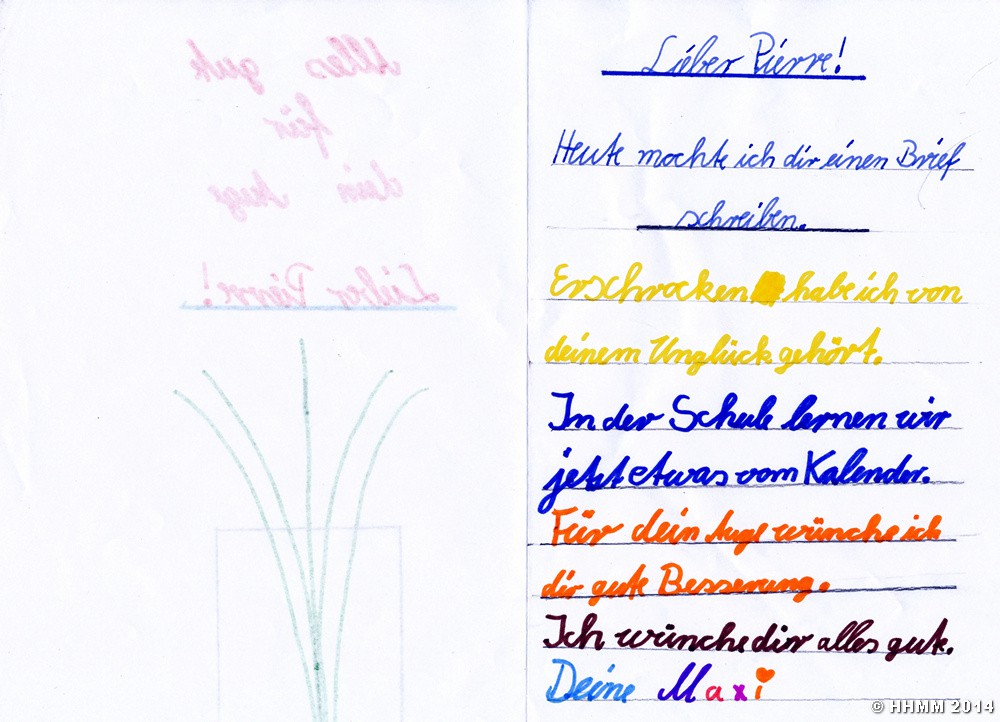 Alles gute
für
dein Auge
Lieber Pierre!
Lieber Pierre!
Heute mochte ich dir einen Brief
schreiben.
Erschrocken habe ich von
deinem Unglück gehört.
In der Schule lernen wir
jetzt etwas vom Kalender.
Für dein Auge wünche ich
dir gute Besserung.
Ich wünche dir alles gute.
Deine Maxi
© HHMM 2014